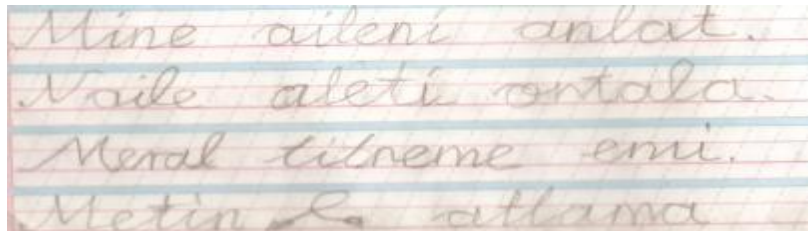 Mine aileni anlat.
Naile aleti ortala.
Meral titreme emi.
Metin atlama